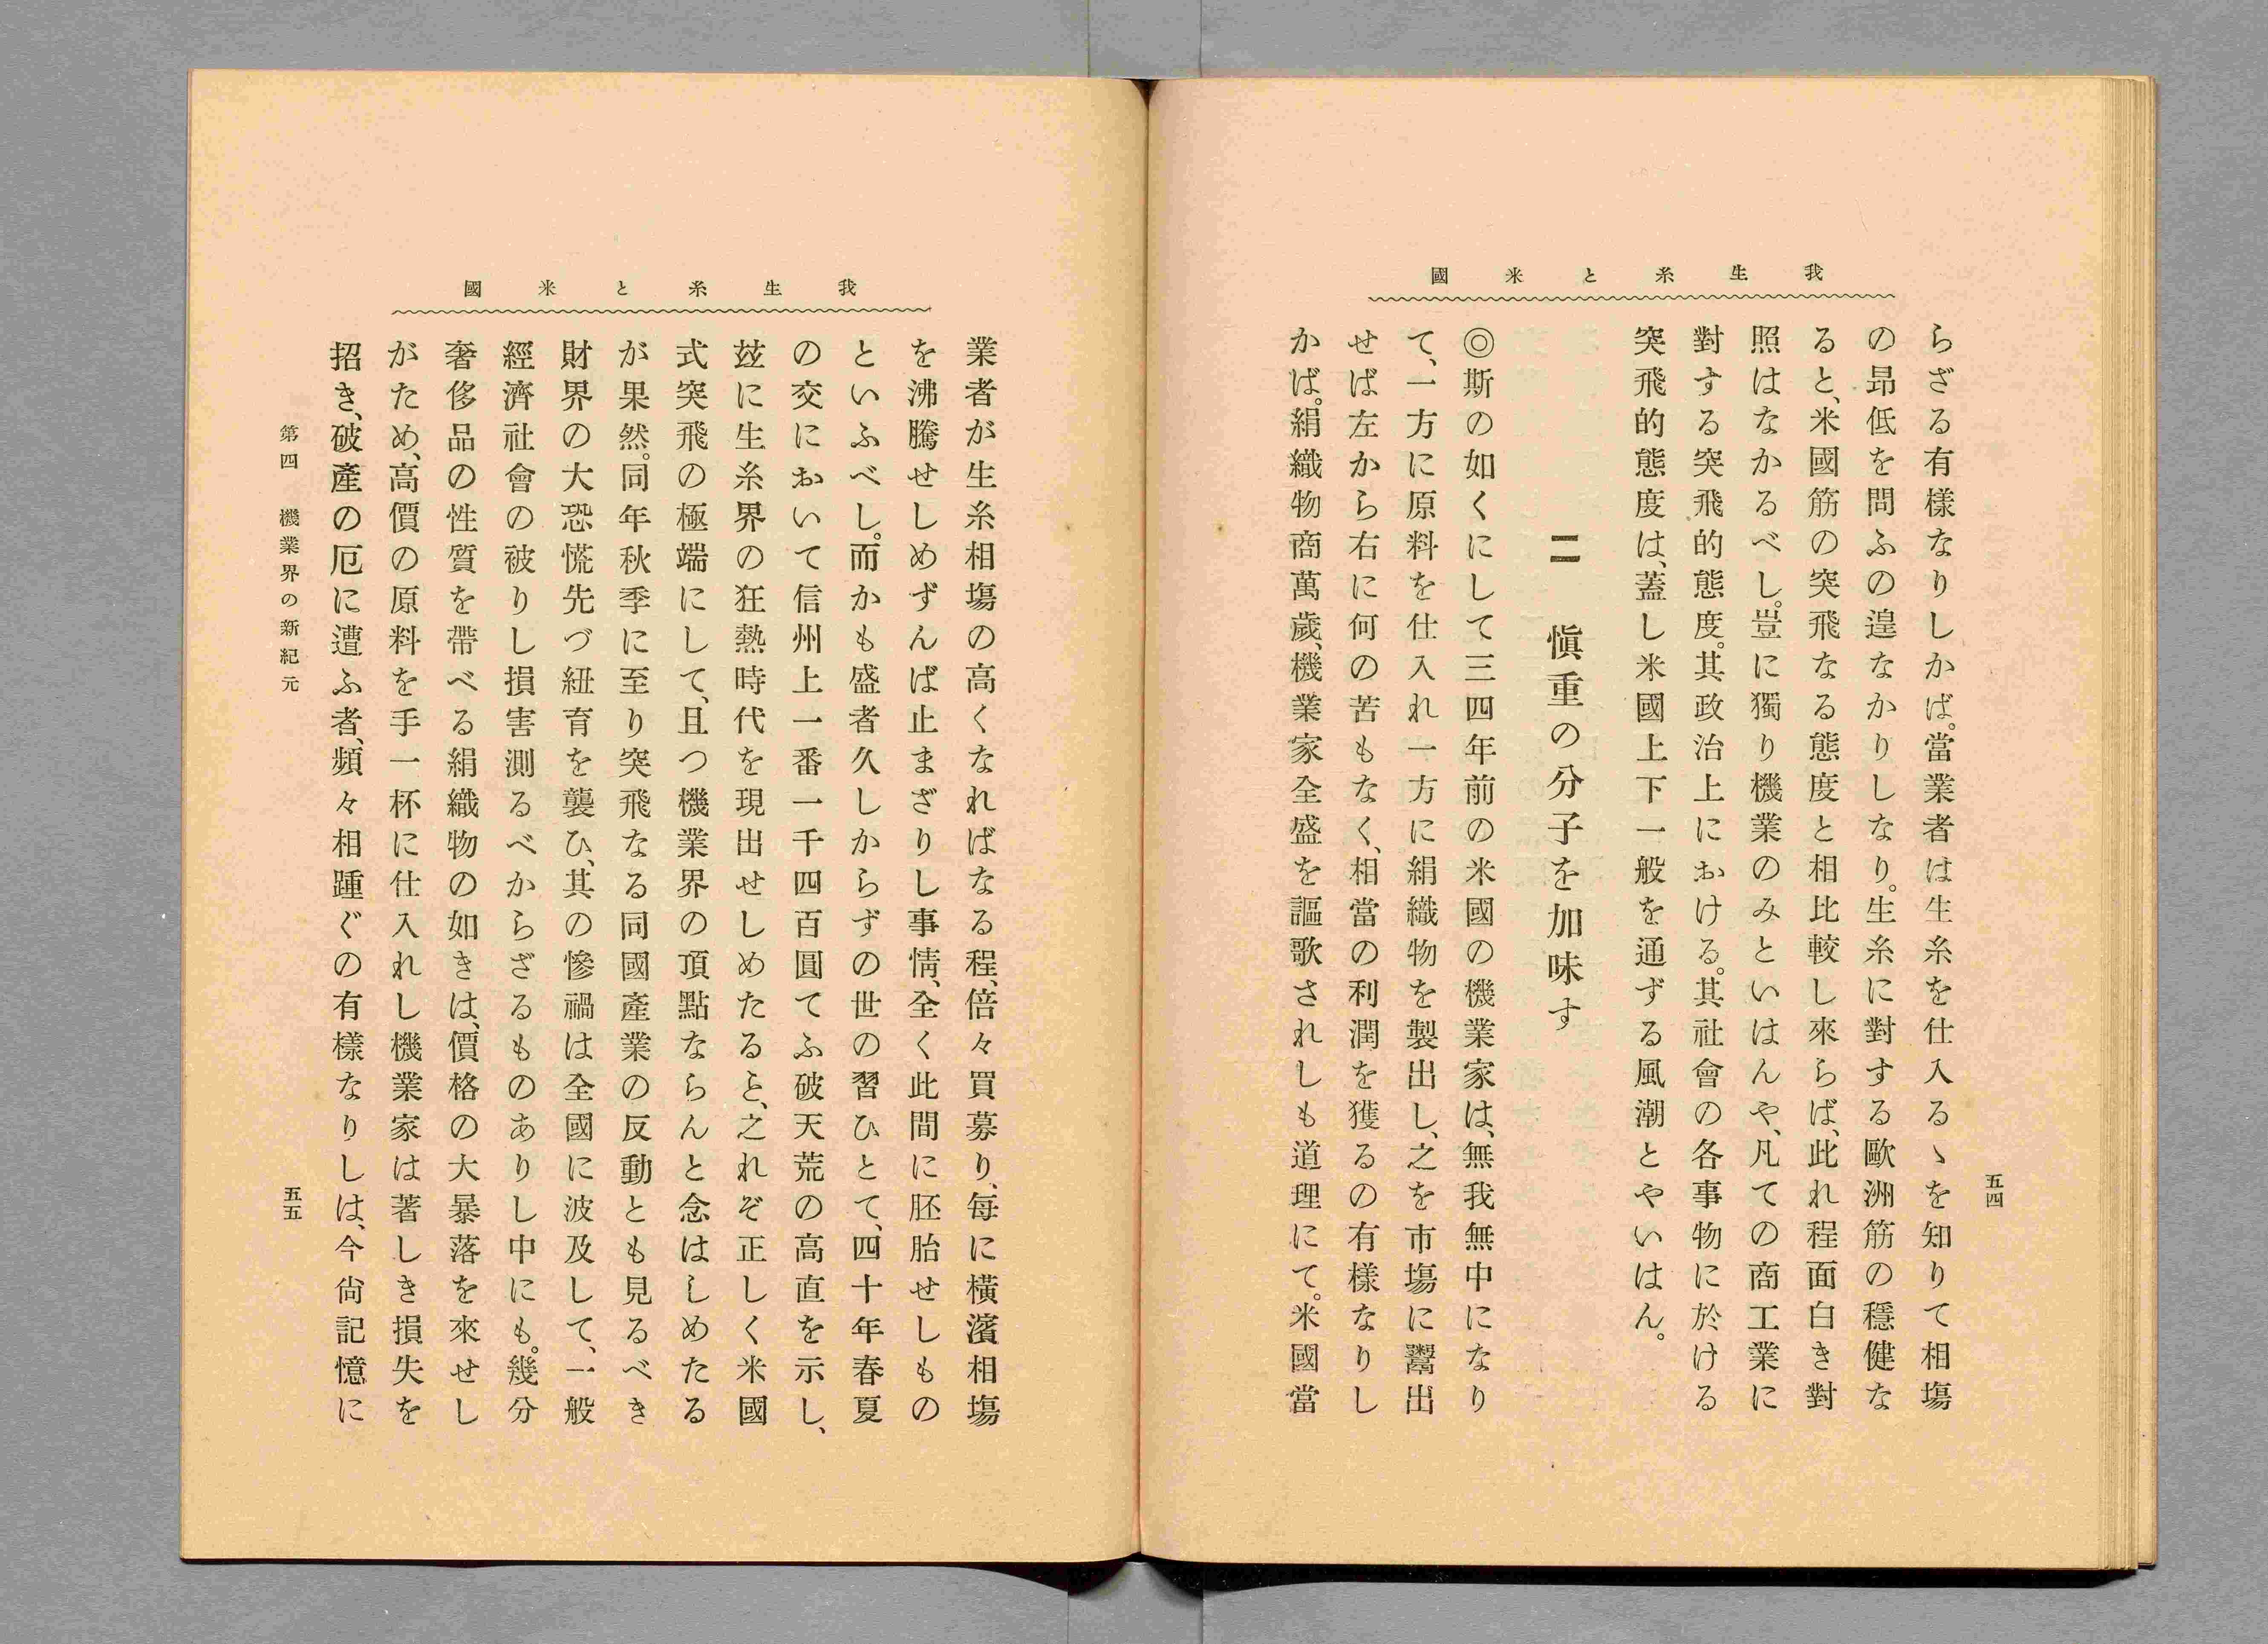 我生糸と米國
五四
らざる有樣なりしかば。當業者は生糸を仕入るゝを知りて相塲
の昻低を問ふの遑なかりしなり。生糸に對する歐洲筋の穩健な
ると、米國筋の突飛なる態度と相比較し來らば、此れ程面白き對
照はなかるべし。豈に獨り機業のみといはんや、凡ての商工業に
對する突飛的態度。其政治上における。其社會の各事物に於ける
突飛的態度は、蓋し米國上下一般を通ずる風潮とやいはん。
二 愼重の分子を加味す
◎斯の如くにして三四年前の米國の機業家は、無我無中になり
て、一方に原料を仕入れ一方に絹織物を製出し、之を市塲に鬻出
せば左から右に何の苦もなく、相當の利潤を獲るの有樣なりし
かば。絹織物商萬歲、機業家全盛を謳歌されしも道理にて。米國當
我生糸と米國
業者が生糸相塲の高くなればなる程、倍々買募り、每に橫濱相塲
を沸騰せしめずんば止まざりし事情、全く此間に胚胎せしもの
といふべし。而かも盛者久しからずの世の習ひとて、四十年春夏
の交において信州上一番一千四百圓てふ破天荒の高直を示し、
玆に生糸界の狂熱時代を現出せしめたると、之れぞ正しく米國
式突飛の極端にして、且つ機業界の頂點ならんと念はしめたる
が果然。同年秋季に至り突飛なる同國產業の反動とも見るべき
財界の大恐慌先づ紐育を襲ひ、其の慘禍は全國に波及して、一般
經濟社會の被りし損害測るべからざるものありし中にも。幾分
奢侈品の性質を帶べる絹織物の如きは、價格の大暴落を來せし
がため、高價の原料を手一杯に仕入れし機業家は著しき損失を
招き、破產の厄に遭ふ者、頻々相踵ぐの有樣なりしは、今尙記憶に
第四 機業界の新紀元
五五